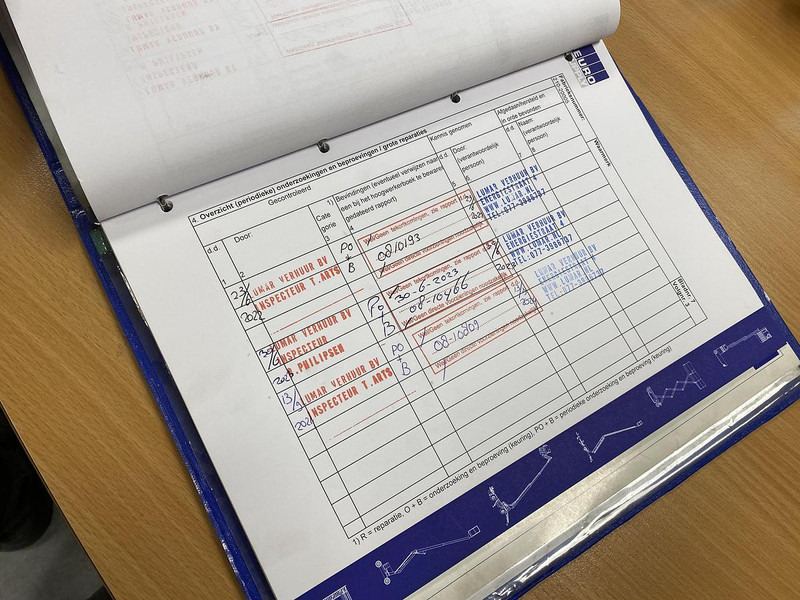 EURO
Fabrieksnummer:
Waarmerk
4. Overzicht (periodieke) onderzoekingen en beproevingen / grote reparaties
Gecontroleerd
Kennis genomen
Afgedaan/hersteld en
in orde bevonden
d.d.
Door:
1)
Cate
gorie
Bevindingen (eventueel verwijzen naar
een bij het hoogwerkerboek te bewaren
gedateerd rapport)
d.d.
Door:
(verantwoordelijk
persoon)
d.d.
Naam:
(verantwoordelijk
persoon)
1
2
3
4
5
6
7
8
2022
UMAR VERHUUR BV
NSPECTEUR T.ARTS
PO
+
B
Wel/Geen tekortkomingen, zie rapport
0810193
LUMAR VERHUUR BV
ENERGIESTRAAT 4
WWW.LUMAR.NL
TEL:077-3986797
UMAR VERHUUR BV
NSPECTEUR
PHILIPSEN
PO
+
B
Wel/Geen tekortkomingen, zie rapport
30-6-2023
08-10466
LUMAR VERHUUR BV
ENERGIESTRAAT 4
WWW.LUMAR.NL
TEL:077-3986797
13/9
UMAR VERHUUR BV
NSPECTEUR T.ARTS
PO
+
B
Wel/Geen tekortkomingen, zie rapport
08-10809
LUMAR VERHUUR BV
ENERGIESTRAAT 4
WWW.LUMAR.NL
TEL:077-3986797
Bladnr. 1
Volgnr. 3
1) R = reparatie, O + B = onderzoeking en beproeving (keuring), PO + B = periodieke onderzoeking en beproeving (keuring)